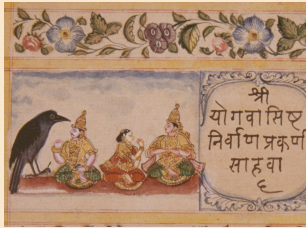 श्री
योगवासिष्ट
निर्वाण प्रकर्ण
साहवा
६